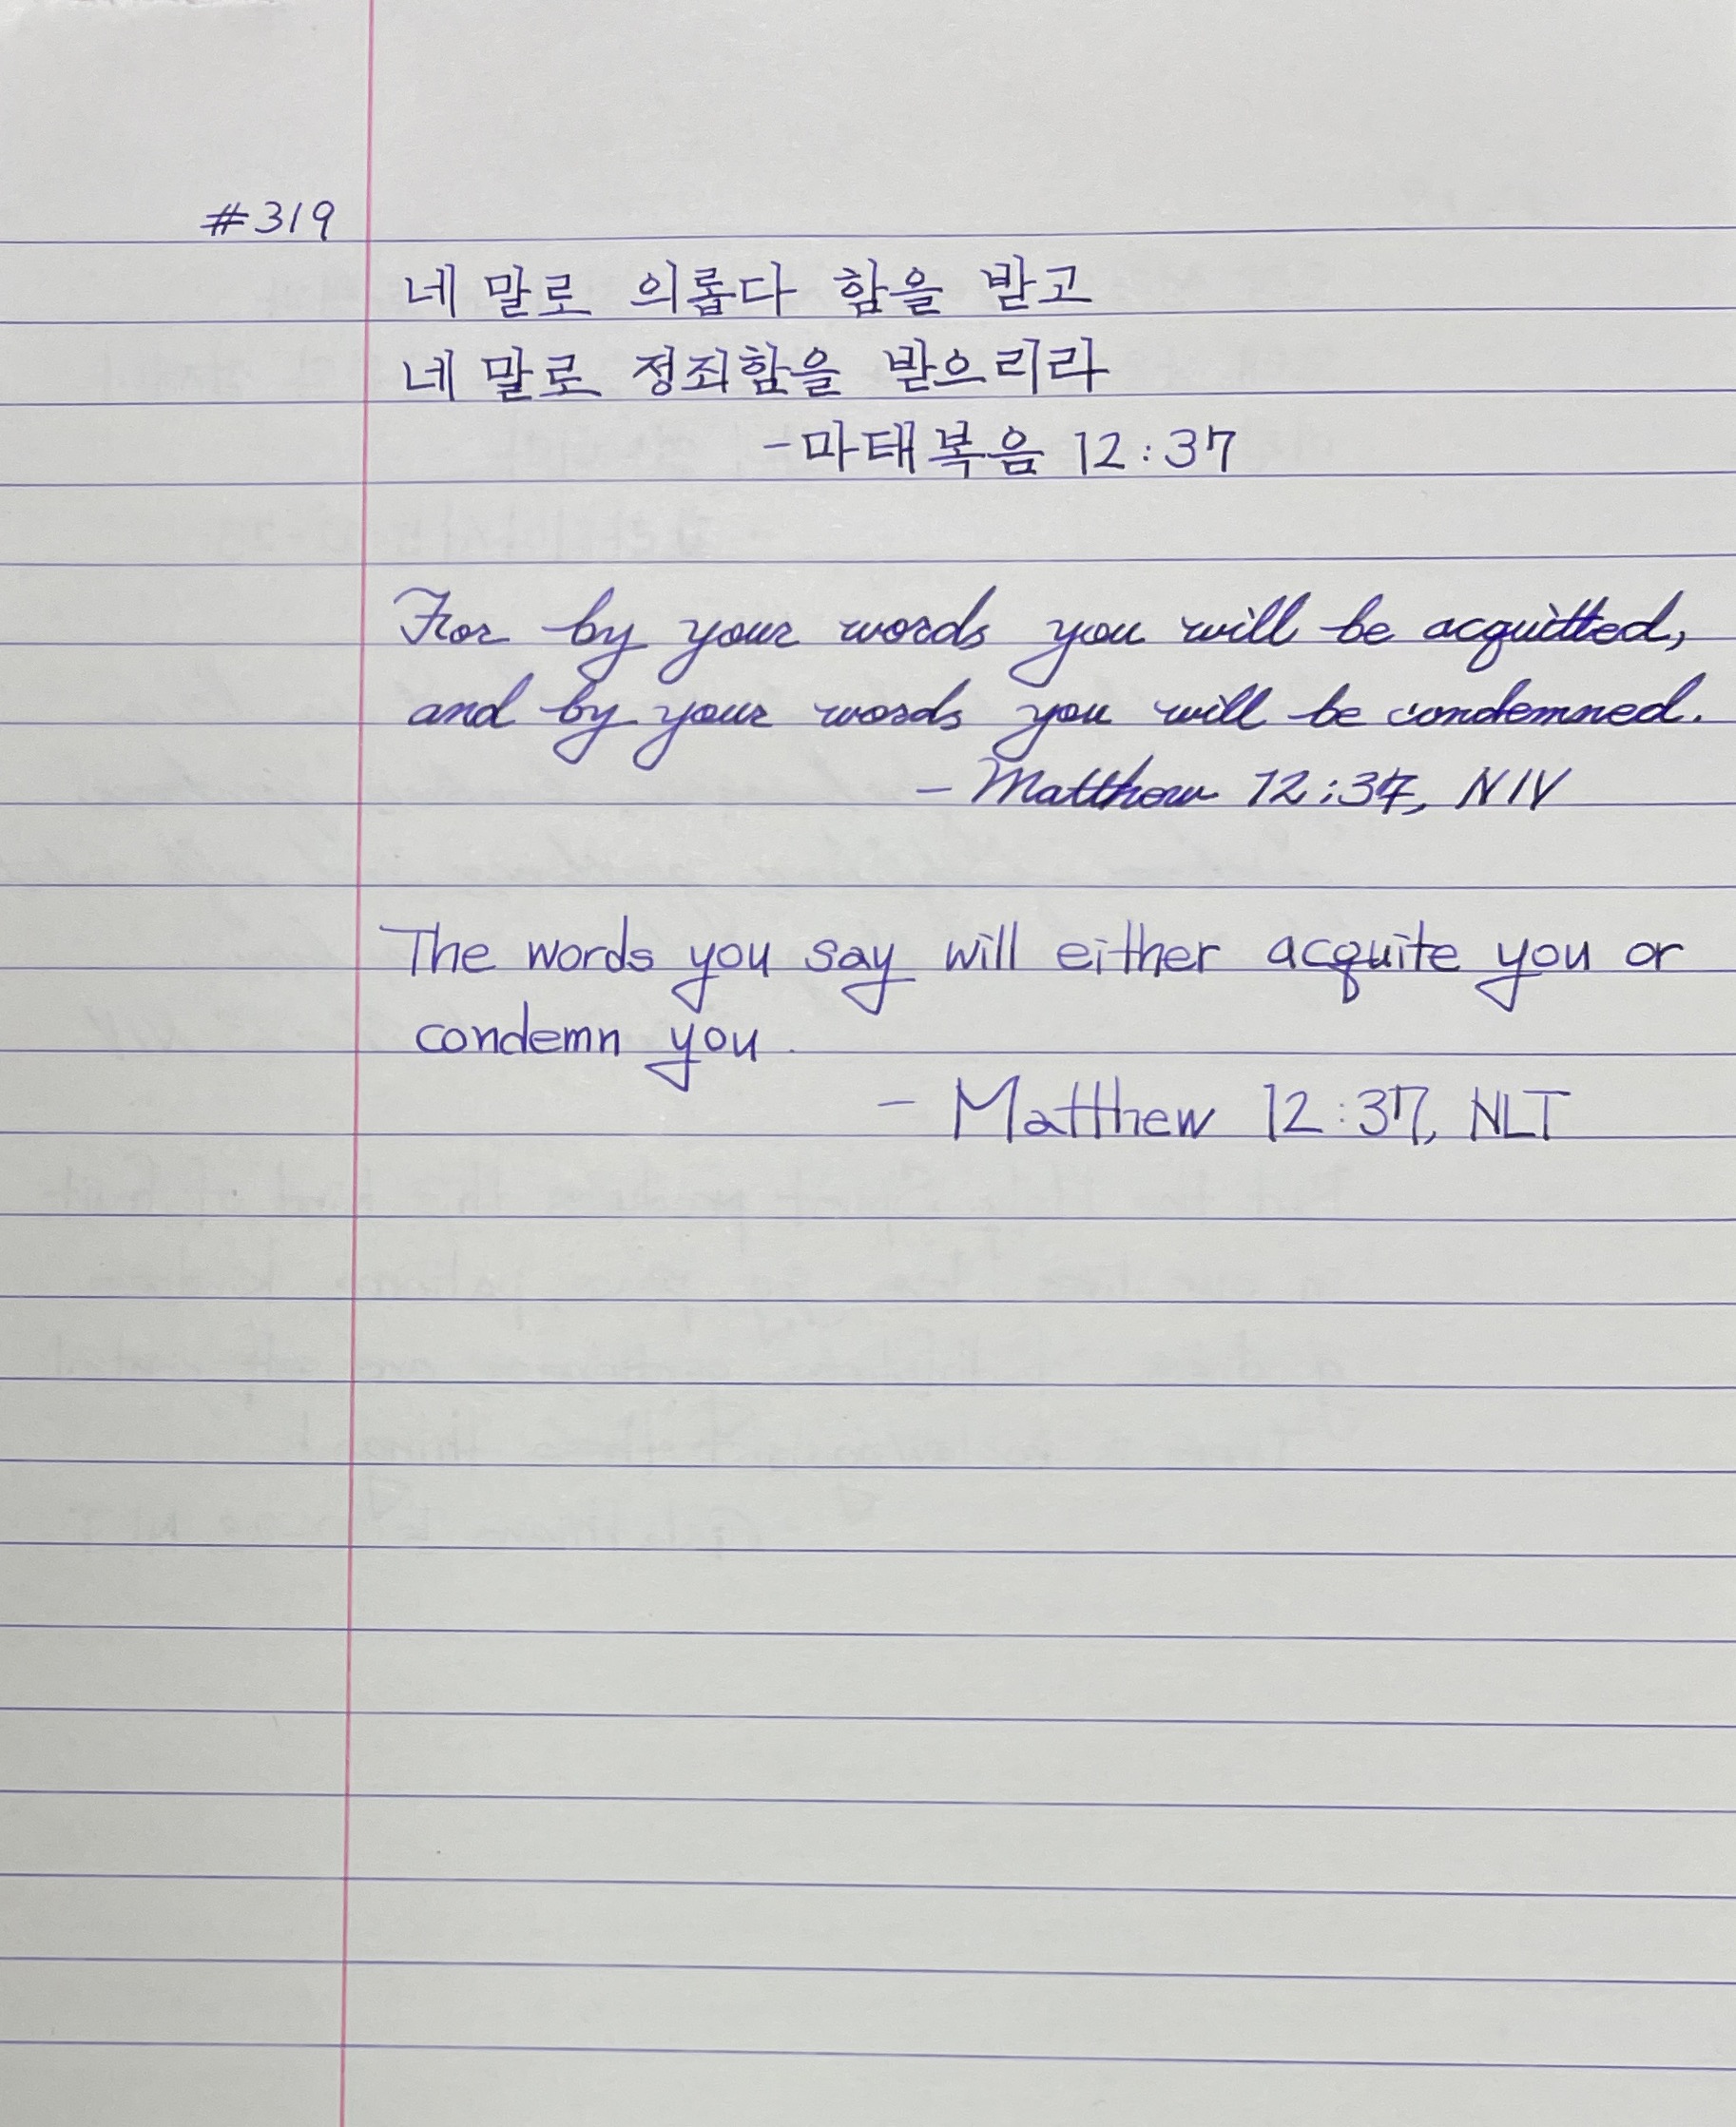 #319
네 말로 의롭다 함을 받고
네 말로 정죄함을 받으리라
-마태복음 12:37
For by your words you will be acquitted,
and by your words you will be condemned.
- Matthew 12:37, NIV
The words you say will either acquite you or
condemn you.
- Matthew 12:37, NLT